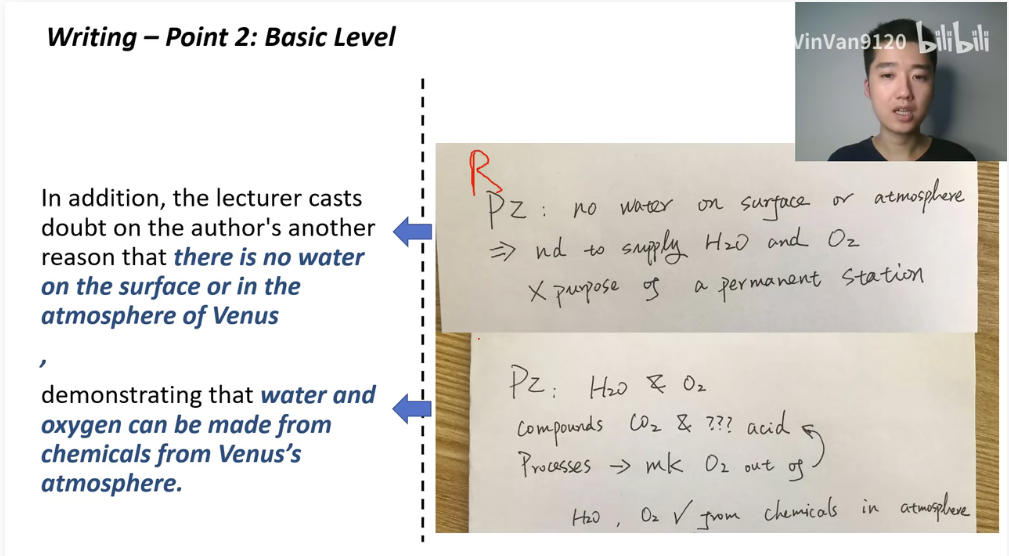 Writing – Point 2: Basic Level
VinVan9120 bilibili
In addition, the lecturer casts
doubt on the author's another
reason that there is no water
on the surface or in the
atmosphere of Venus
,
demonstrating that water and
oxygen can be made from
chemicals from Venus's
atmosphere.
R
Pz: no water on surface or atmosphere
⇒ nd to supply H2O and O2
X purpose of a permanent station
Pz: H2O & O2
compounds CO2 & ??? acid
Processes → mk O2 out of
H2O, O2 √ from chemicals in atmosphere